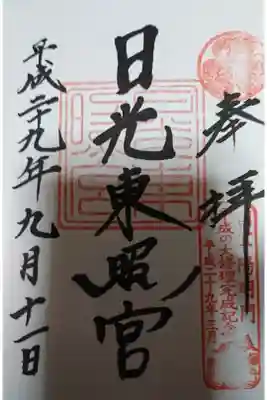 奉拝
陽明門
平成の大修理完成記念
平成二十九年三月
日光東照宮
平成二十九年九月十一日